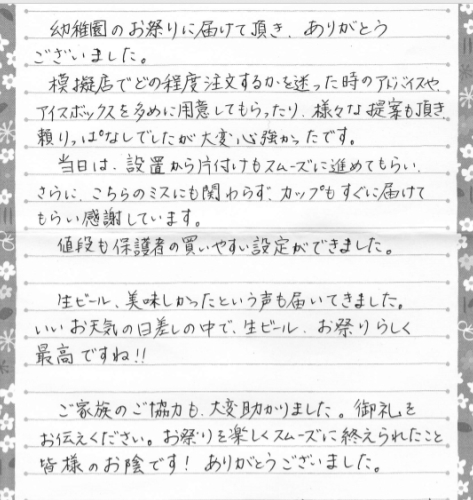 幼稚園のお祭りに届けて頂き、ありがとう
ございました。
模擬店でどの程度注文するかを迷った時のアドバイスや、
アイスボックスを多めに用意してもらったり、様々な提案も頂き
頼りっぱなしでしたが大変心強かったです。
当日は、設置から片付けもスムーズに進めてもらい、
さらに、こちらのミスにも関わらず、カップもすぐに届けて
もらい感謝しています。
値段も保護者の買いやすい設定ができました。
生ビール、美味しかったという声も届いてきました。
いいお天気の日差しの中で、生ビール、お祭りらしく
最高ですね!!
ご家族のご協力も、大変助かりました。御礼を
お伝えください。お祭りを楽しくスムーズに終えられたこと
皆様のお陰です! ありがとうございました。